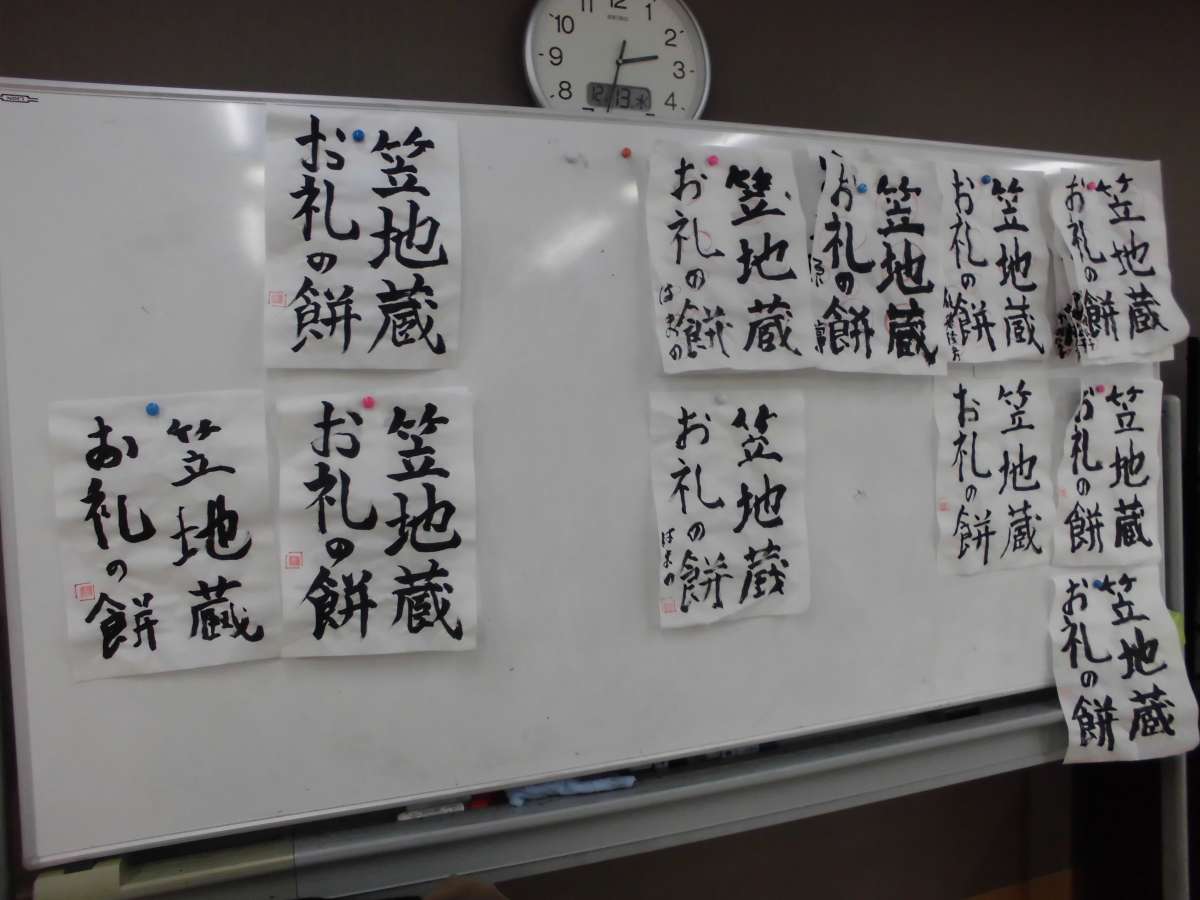 11 12 1
10 2
9 3
8 4
SEIKO
12 13 水
笠地蔵
お礼の餅
笠地蔵
お礼の餅
笠地蔵
お礼の餅
笠地蔵
お礼の餅
はまの
笠地蔵
お礼の餅
笠地蔵
お礼の餅
笠地蔵
お礼の餅
笠地蔵
お礼の餅
はまの
笠地蔵
お礼の餅
笠地蔵
お礼の餅
笠地蔵
お礼の餅